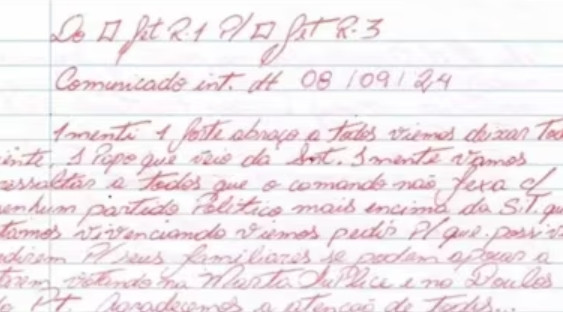 Do □ Jet R.1 P/ □ Jet R-3
Comunicado int. dt 08/09/24
1menti 1 forte abraço a todos viemos deixar Tod
iente 1 Papo que veio da Snt. 1mente vamos
ressaltar a todos que o comando não fexa c/
enhum partido Politico mais encima da S.T. qu
tamos vivenciando viemos pedir P/ que possiv
edirem P/ seus familiares se podem apoiar a
terem votando na Marta Suplice e no Boulos
do PT. Agradecemos a atenção de Todos...